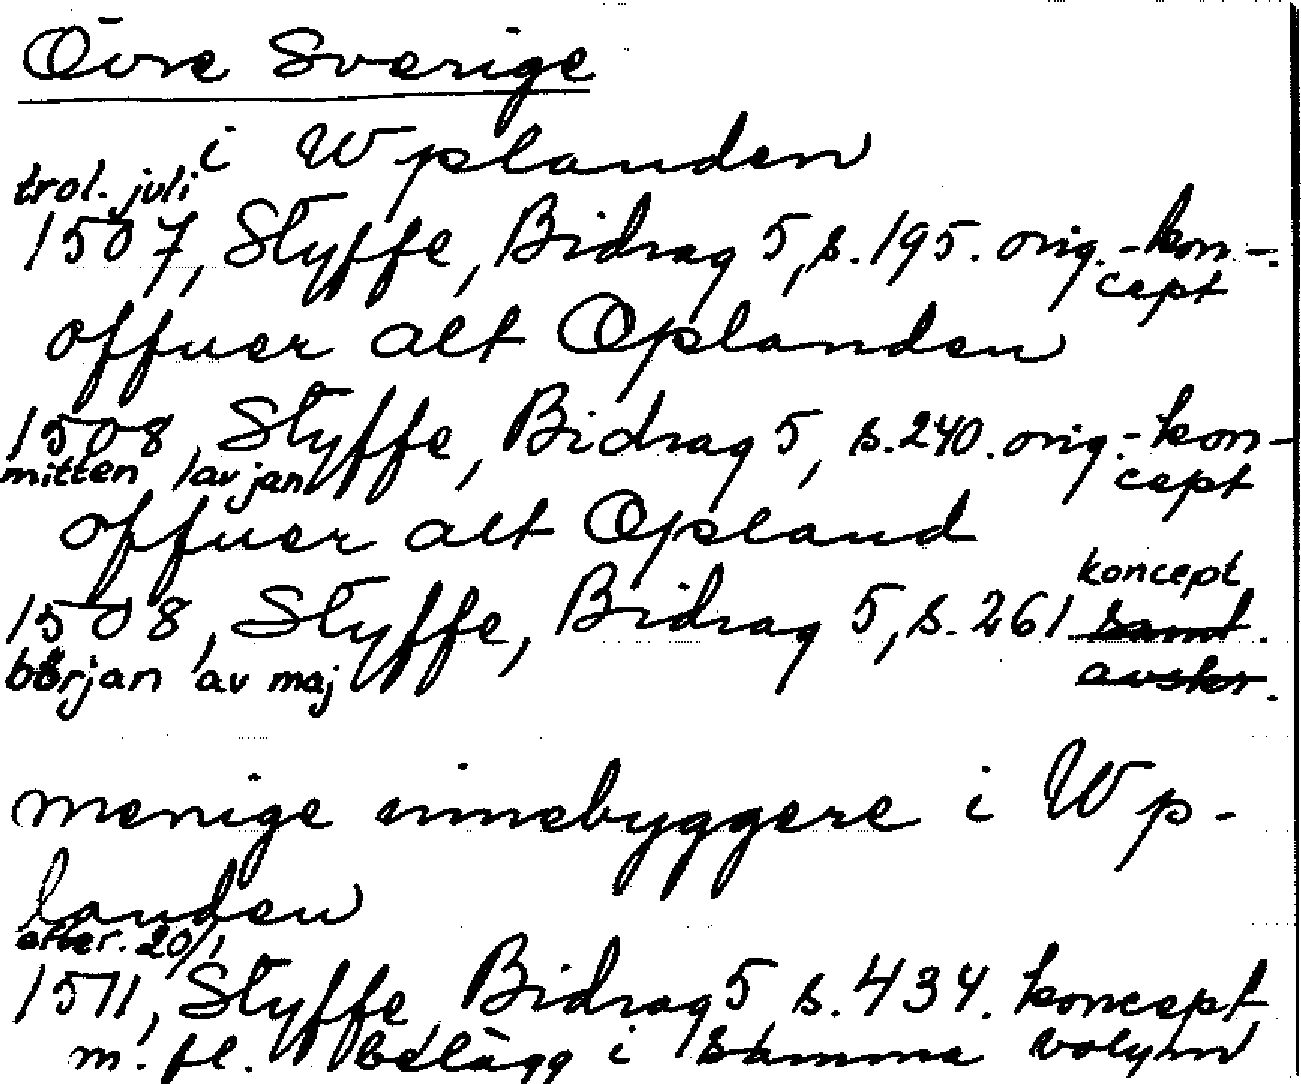 Övre Sverige
i Wplanden
trol. juli
1507, Styffe, Bidrag 5, s. 195. orig.-kon-
cept
offuer alt Oplanden
1508, Styffe, Bidrag 5, s. 240. orig.-kon-
mitten av jan cept
offuer alt Opland
koncept
1508, Styffe, Bidrag 5, s. 261 samt.
början av maj avskr.
menige innebyggere i Wp-
landen
efter. 20/1
1511, Styffe, Bidrag 5 s. 434. koncept
m. fl. belägg i samma volym